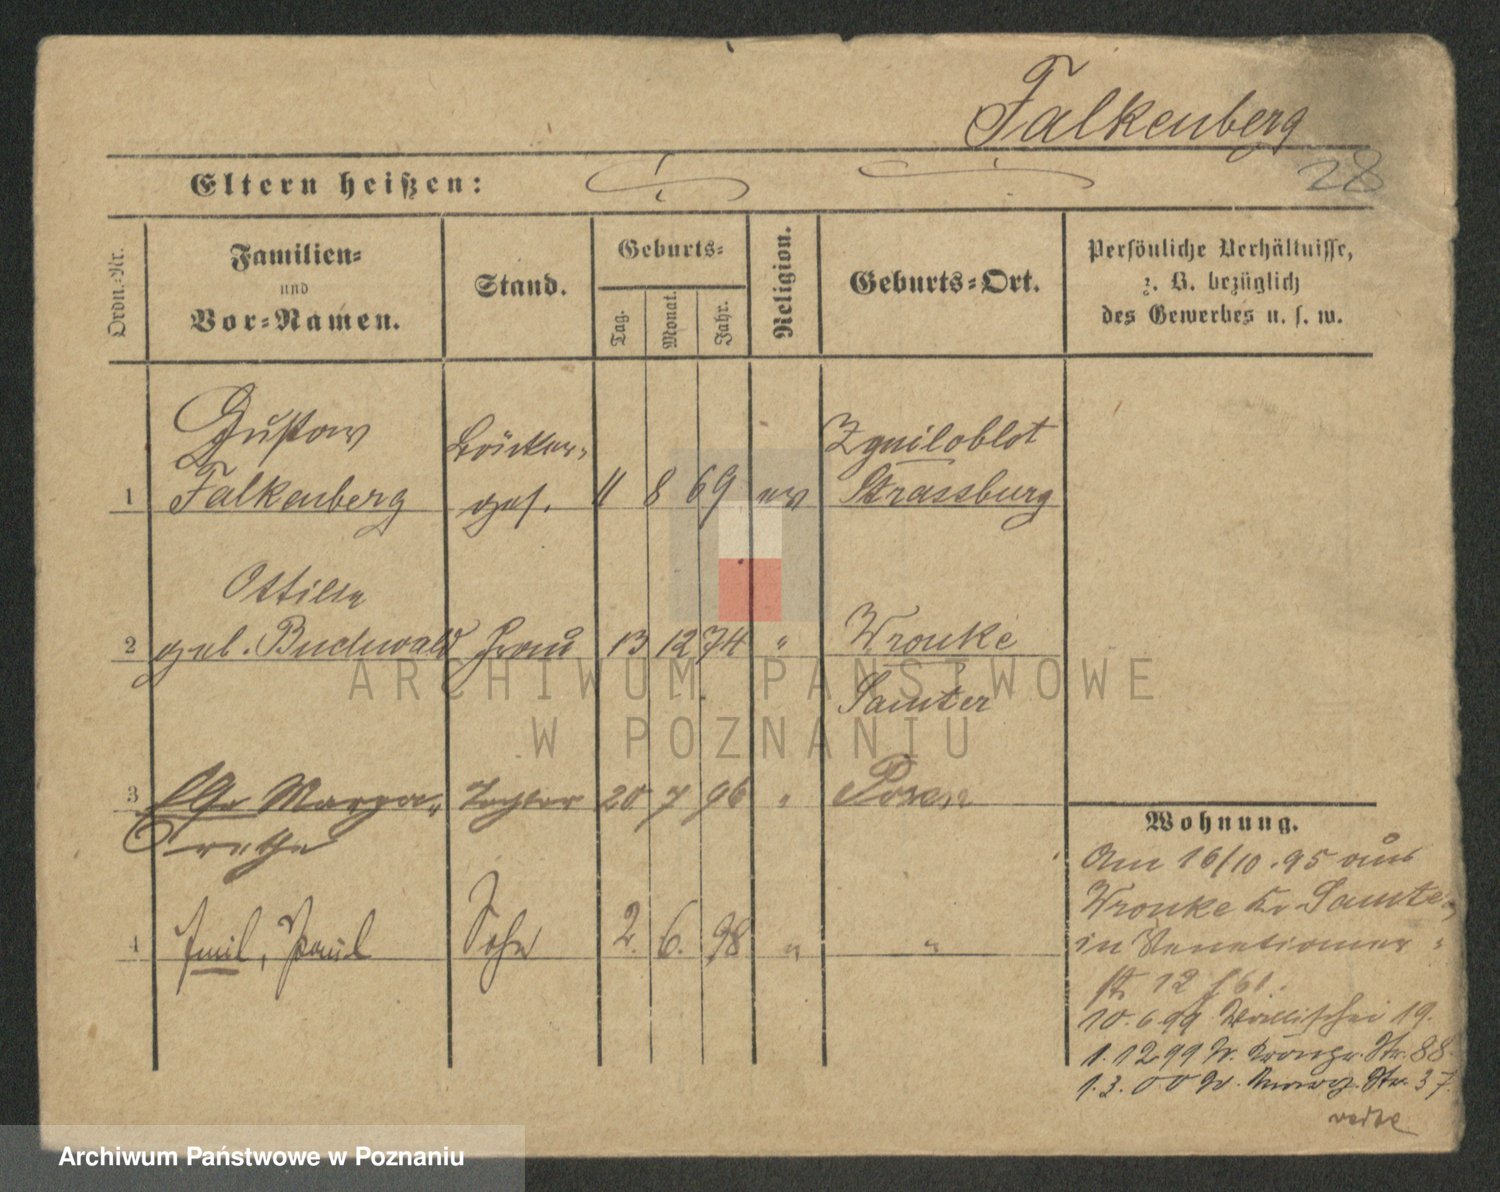 Falkenberg
28
Eltern heißen:
Ordn.-Nr.
Familien-
und
Vor-Namen.
Stand.
Geburts-
Tag.
Monat.
Jahr.
Religion.
Geburts-Ort.
Persönliche Verhältnisse,
z. B. bezüglich
des Gewerbes u. s. w.
Gustav
Falkenberg
Bäcker-
ges.
1
11 8 69 ev
Zgniloblot
Strassburg
Ottilie
2 geb. Buchwald Frau 13 12 74 "
Wronke
Samter
3
Marga-
rethe
Tochter 20 7 96 " Posen
4 Emil, Paul Sohn 2. 6. 98 " "
Wohnung.
Am 16/10.95 aus
Wronke Kr Samter
in Venetianer-
st. 12 b/
10.6.99 Wallischei 19.
1.12 99 W. Kronpr. Str. 88
1.3.00 W. Str. 37.
ARCHIWUM PAŃSTWOWE
W POZNANIU
Archiwum Państwowe w Poznaniu